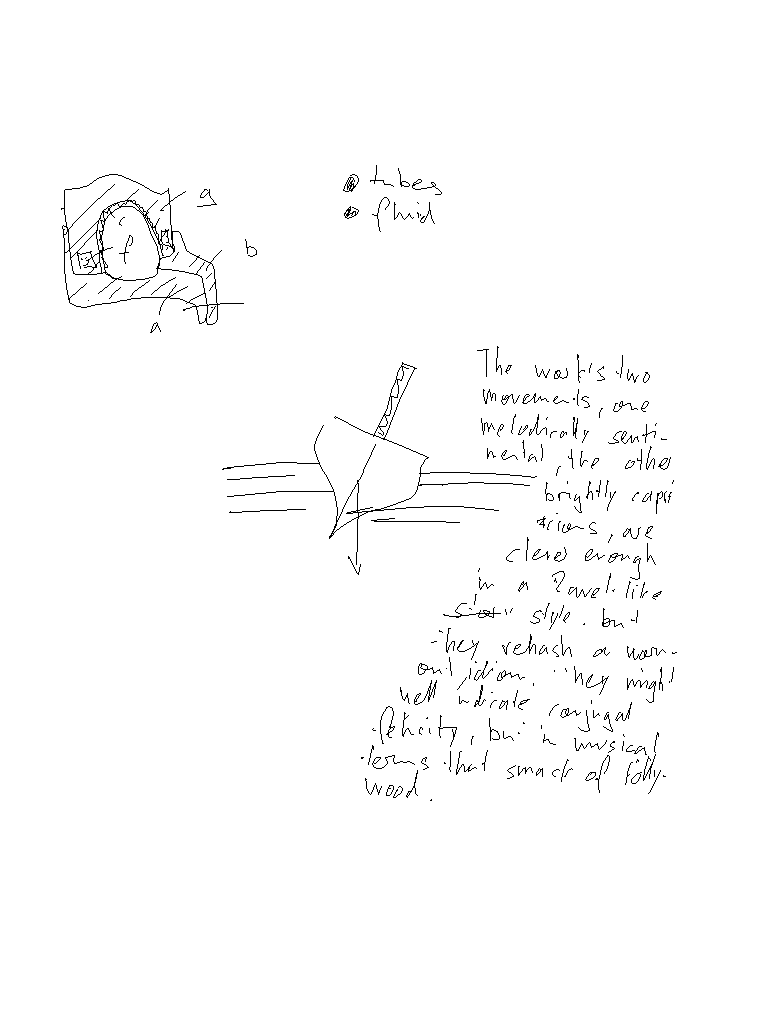 g
f
b
a
tubes
fluid
The work's two
movements, one
melodically senti-
mental, the other
brightly capri
cious, are
clever enough
in a Ravel-like
style. but
they rehash a worn-
out idiom. They might
well indicate conjugal
felicity, but in musical
terms that smack of Holly-
wood.